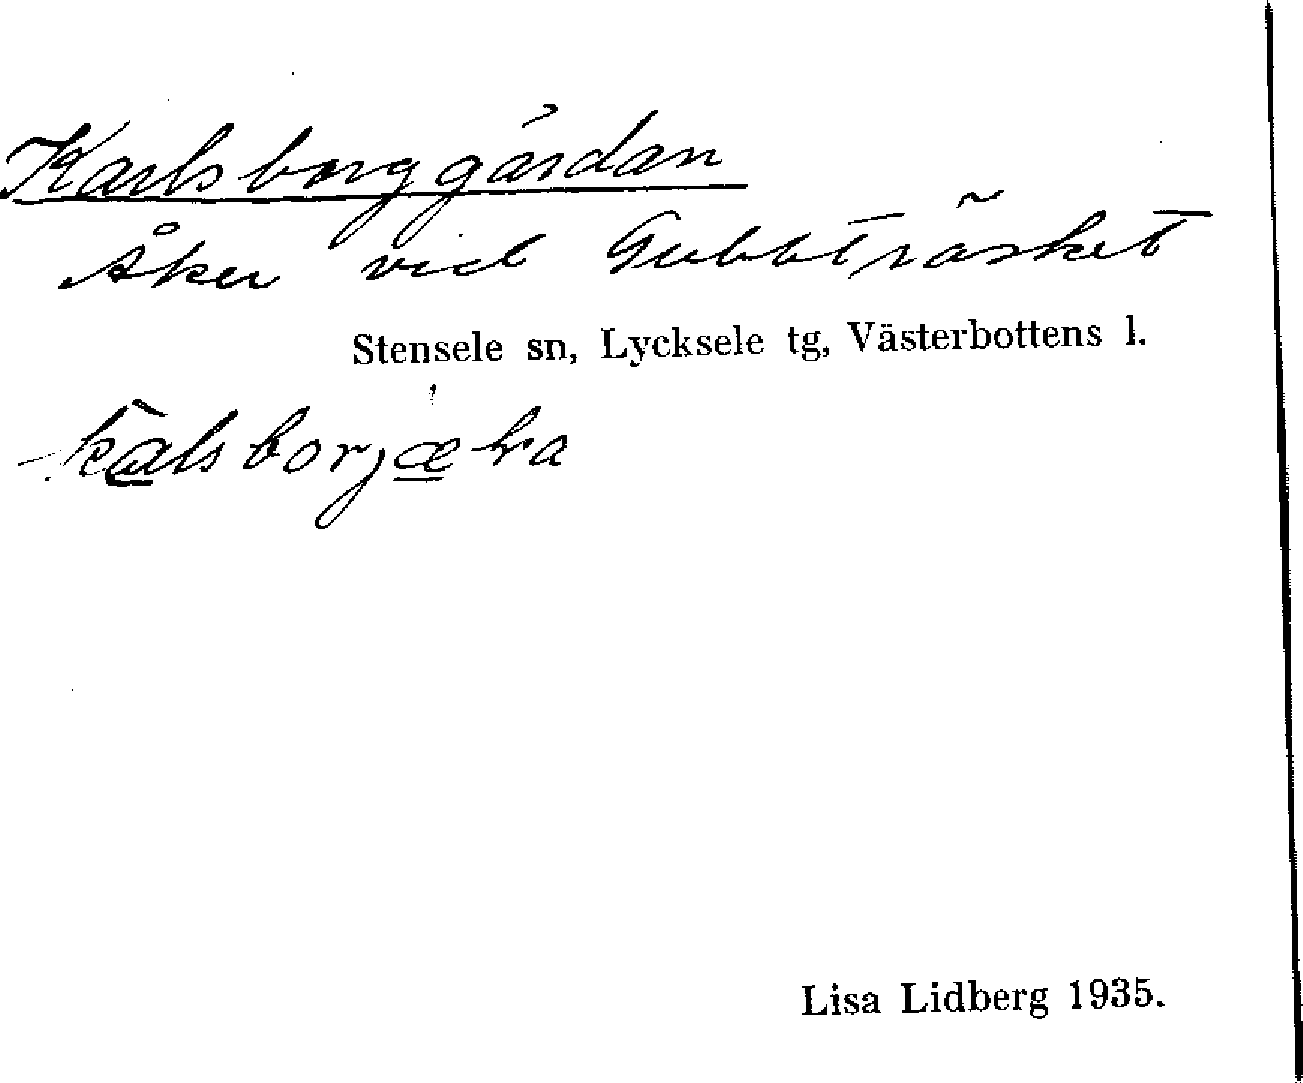 Karlsborggärdan
Åker vid Gubbträsket
Stensele sn, Lycksele tg, Västerbottens l.
Lisa Lidberg 1935.